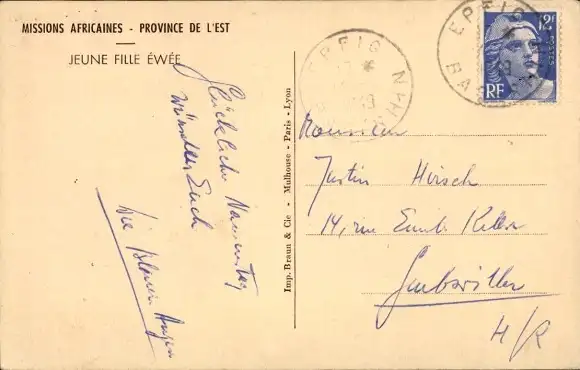 MISSIONS AFRICAINES - PROVINCE DE L'EST
JEUNE FILLE ÉWÉE
Glückliche Namenstag
wünscht Euch
Die blauen Augen
Imp. Braun & Cie - Mulhouse - Paris - Lyon
EPFIG
BAS RHIN
EPFIG
BAS
12F
POSTES
RF
Monsieur
Justin Hirsch
14, rue Emile Keller
Guebwiller
H/R